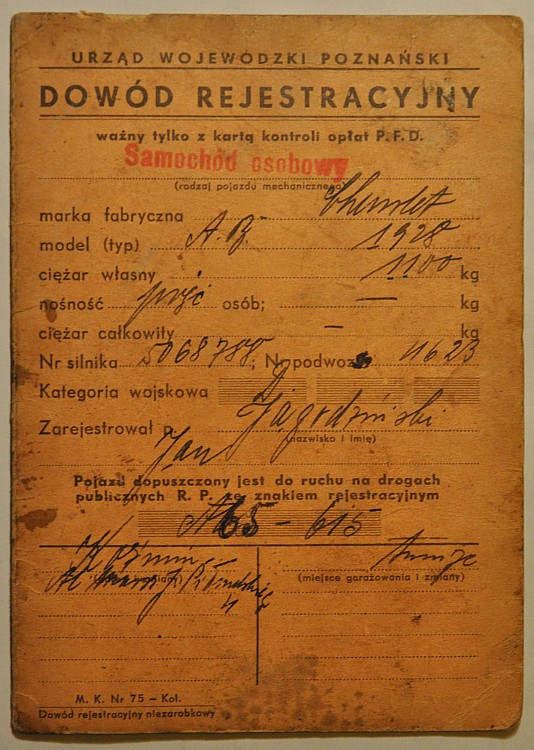 URZĄD WOJEWÓDZKI POZNAŃSKI
DOWÓD REJESTRACYJNY
ważny tylko z kartą kontroli opłat P. F. D.
Samochód osobowy
(rodzaj pojazdu mechanicznego)
marka fabryczna Chevrolet
model (typ) A.B. 1928
ciężar własny 1100 kg
nośność pięć osób; — kg
ciężar całkowity — kg
Nr silnika 5068788; Nr podwoz. 11623
Kategoria wojskowa
Zarejestrował p. Jagodziński
(nazwisko i imię)
Jan
Pojazd dopuszczony jest do ruchu na drogach
publicznych R. P. ze znakiem rejestracyjnym
65-615
(miejsce garażowania i zmiany)
M. K. Nr 75 – Koł.
Dowód rejestracyjny niezarobkowy